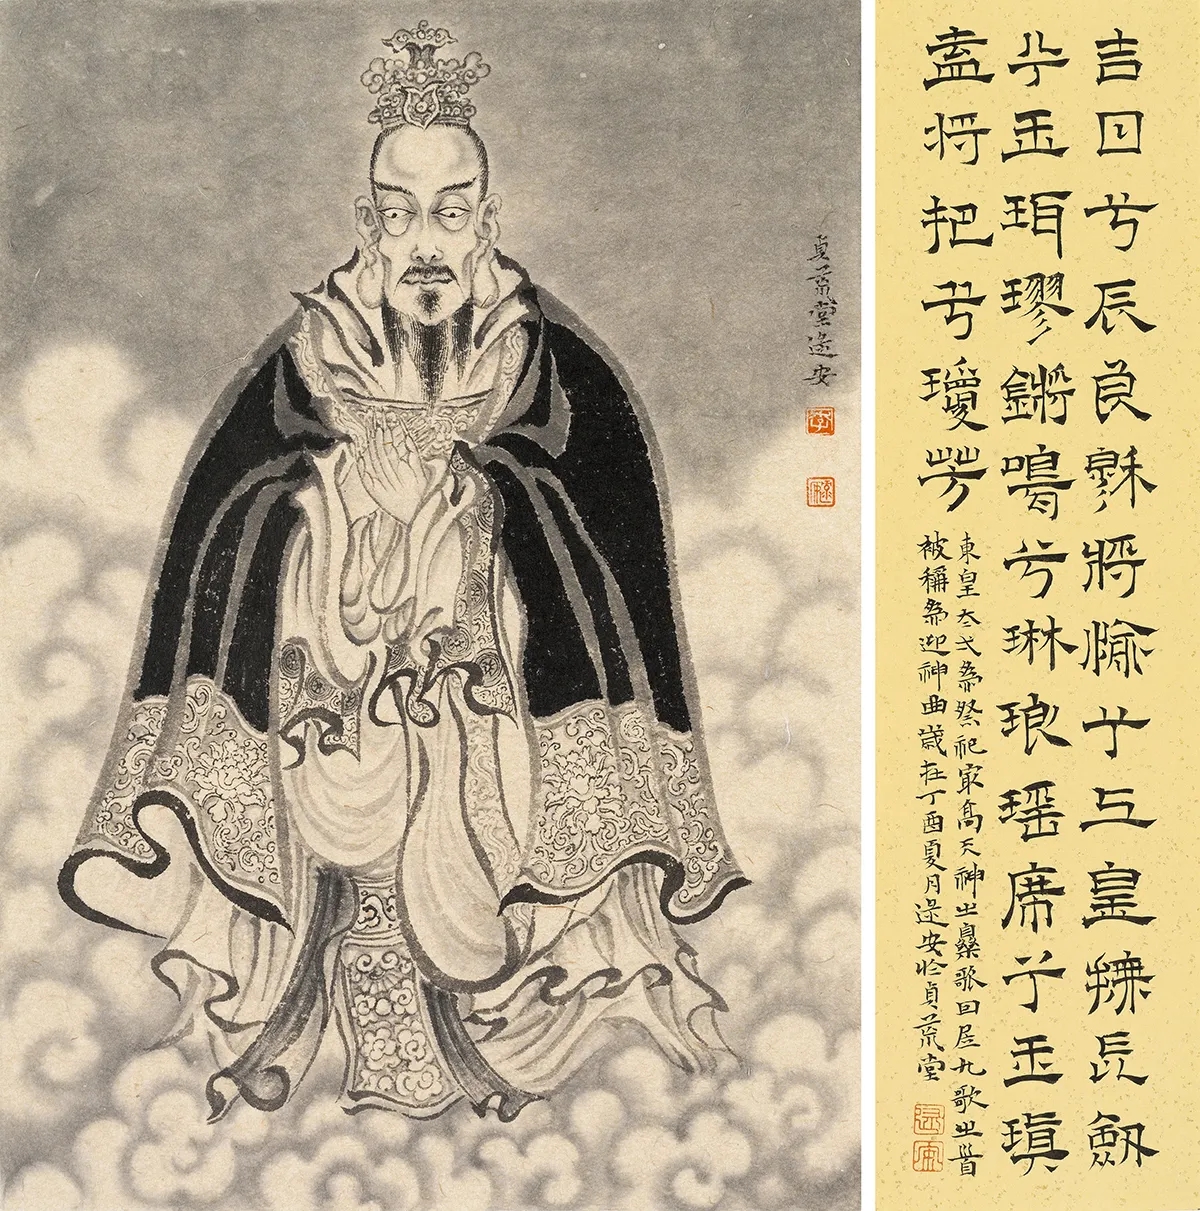 吉日兮辰良穆將愉兮上皇撫長劍
兮玉珥璆鏘鳴兮琳琅瑶席兮玉瑱
盍將把兮瓊芳
東皇太弌爲祭祀冣高天神之樂歌回屈九歌之首
被稱爲迎神曲歲在丁酉夏月逯安於貞荒堂
逯安
貞荒堂逯安